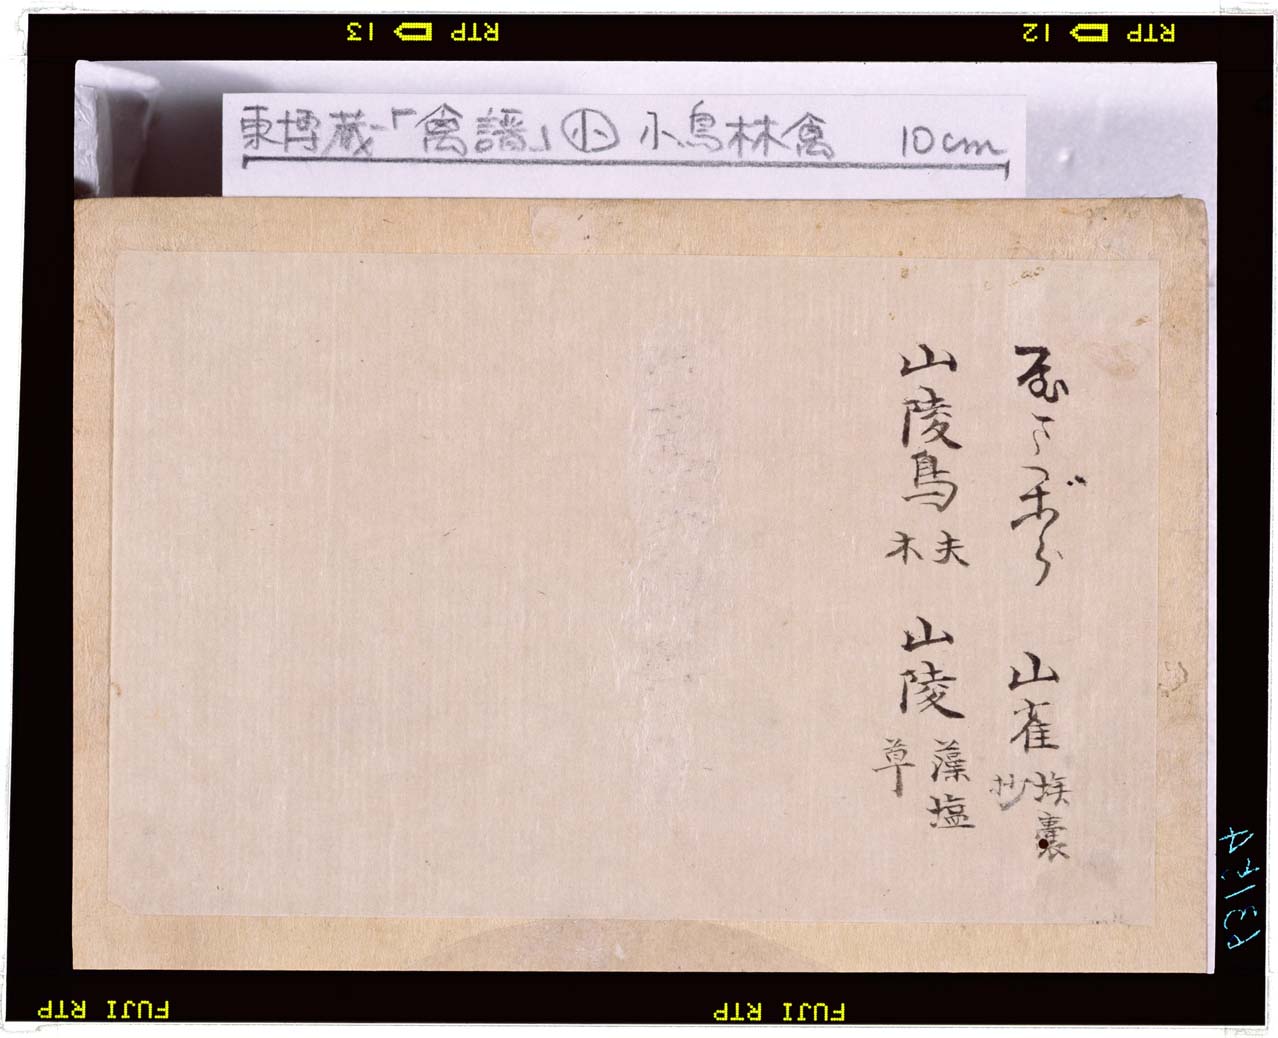 RTP 13
RTP 12
東博蔵「禽譜」㊉小鳥林禽 10cm
やまがら 山雀 埃囊抄
山陵鳥 夫木 山陵 藻塩草
FUJI RTP
FUJI RTP